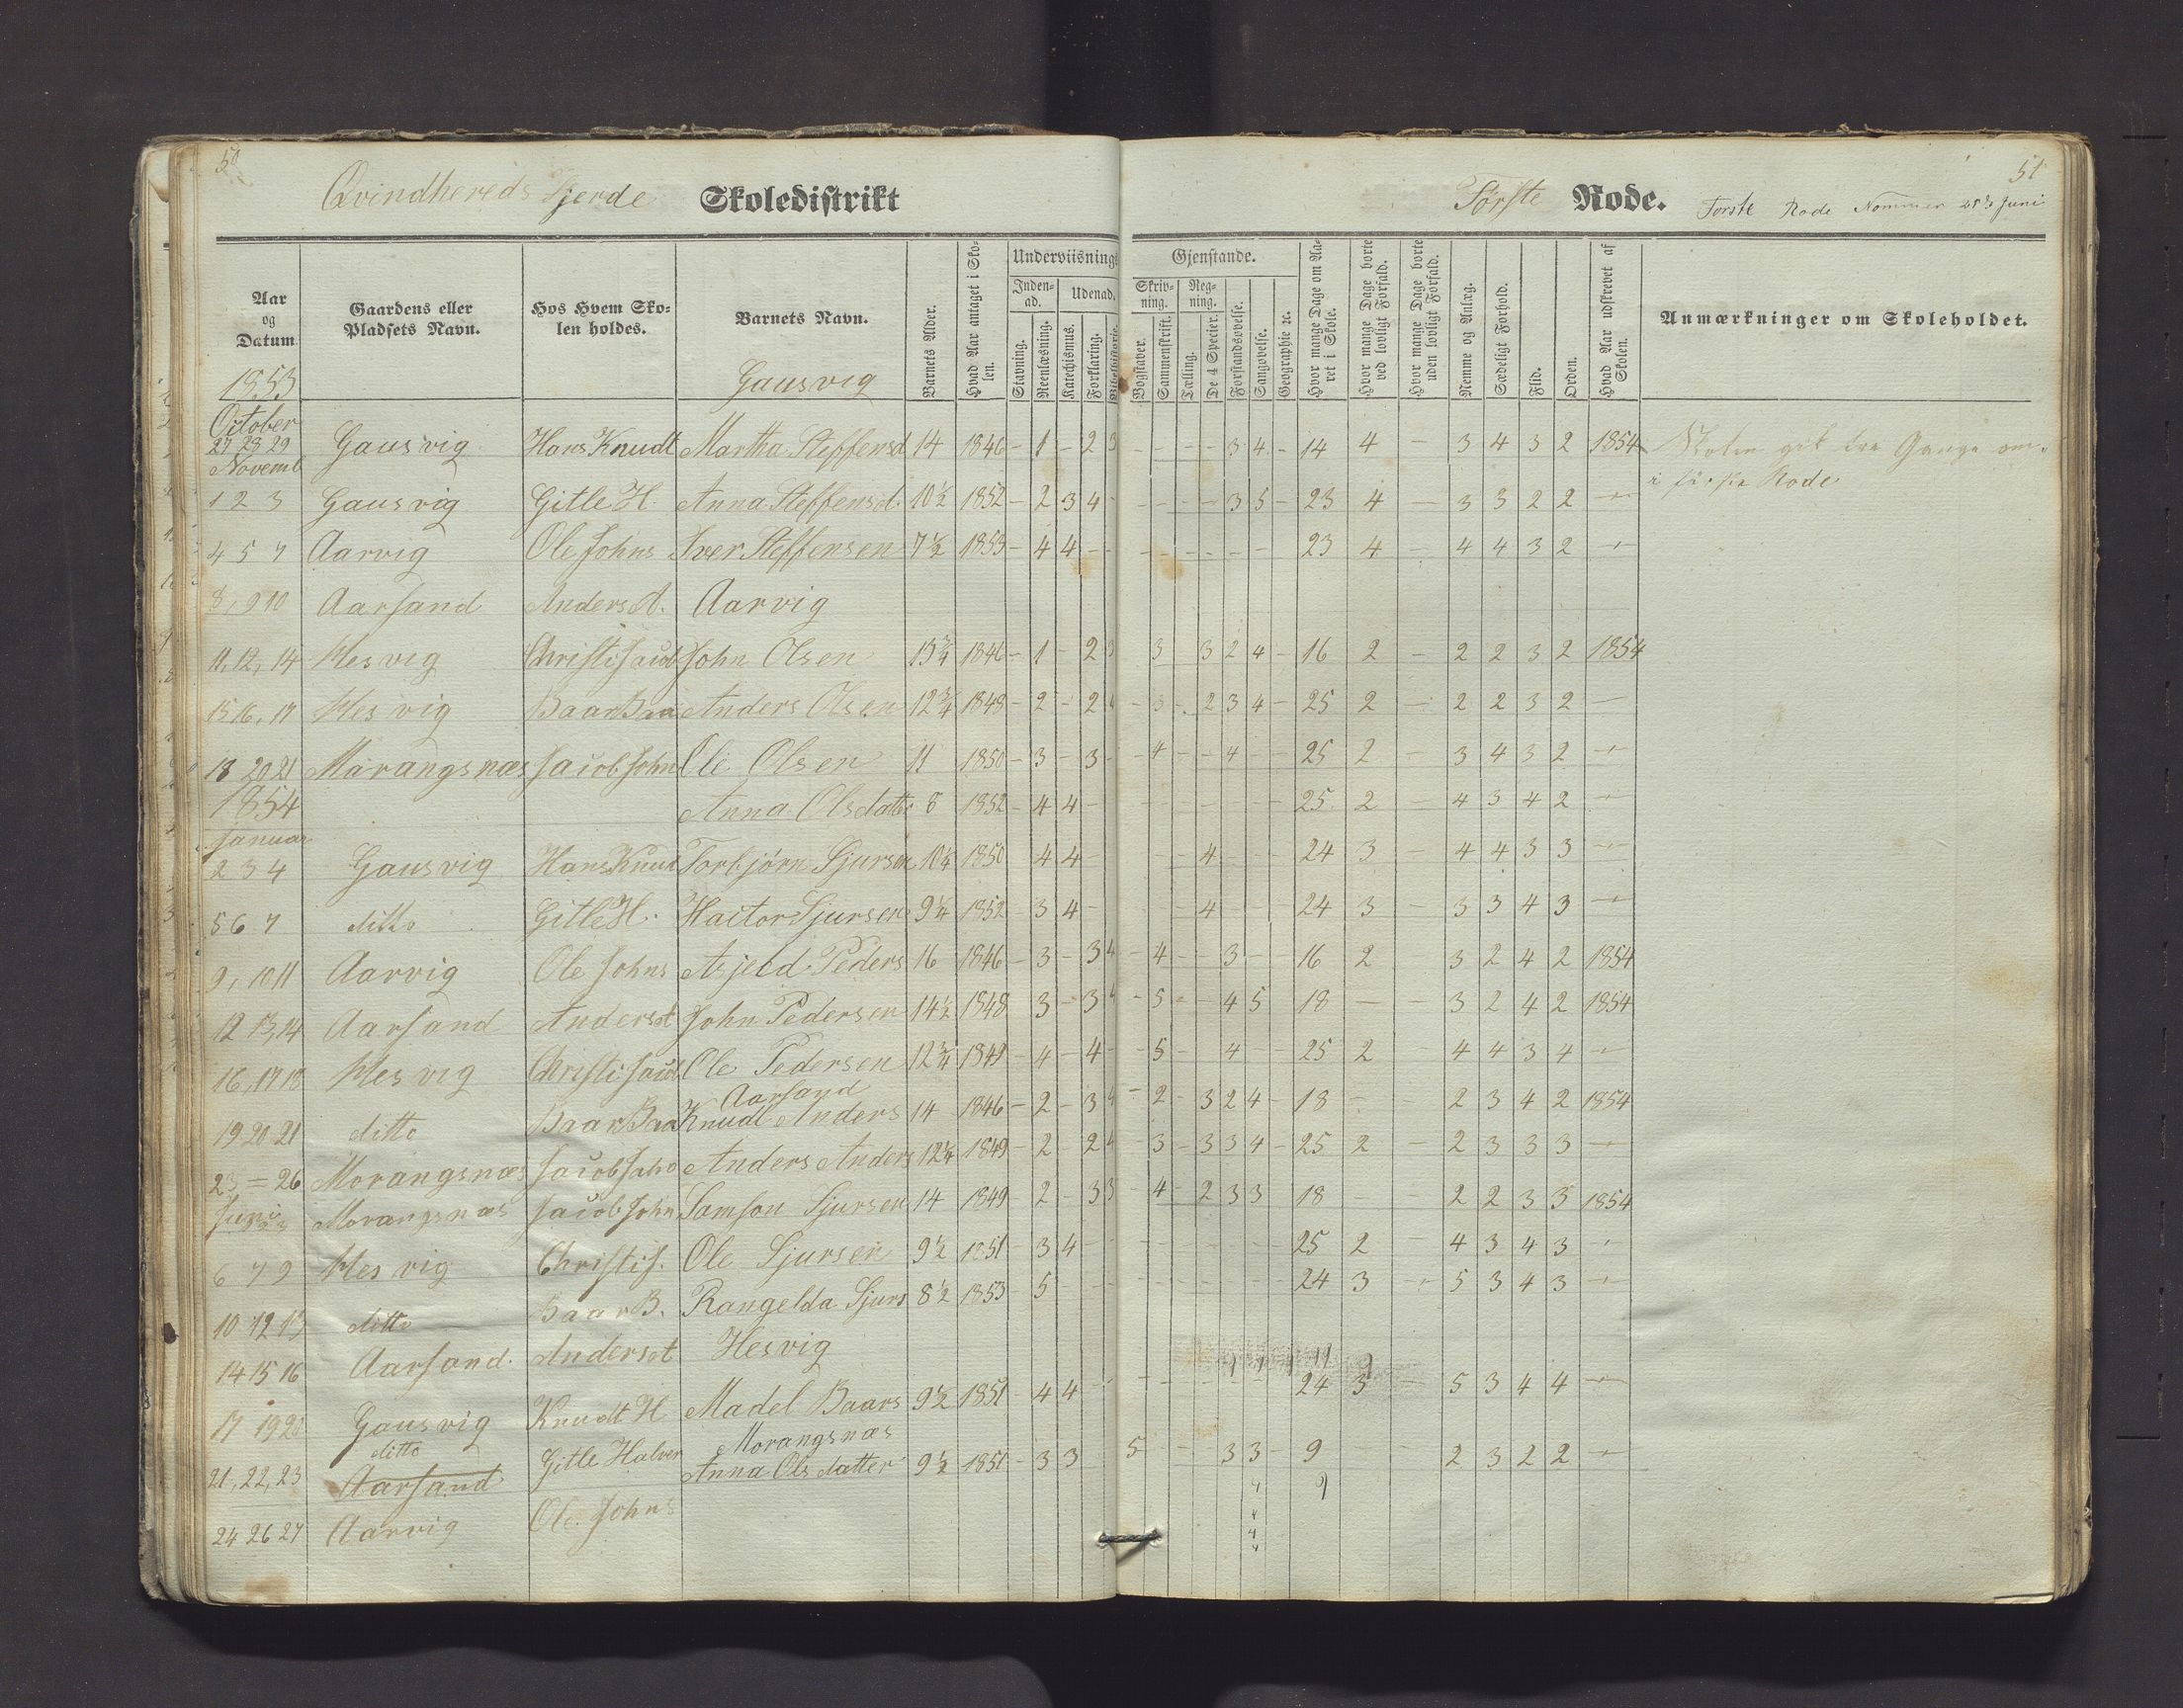 50
Qvindhereds Fjerde Skoledistrikt
Aar og Datum
Gaardens eller Pladsets Navn.
Hos Hvem Skolen holdes.
Barnets Navn.
Barnets Alder.
Hvad Aar antaget i Skolen.
Underviisnings
Inden-ad.
Udenad.
Stavning.
Reenlæsning.
Katechismus.
Forklaring.
Bibelhistorie.
1853
Gausvig
October
27 28 29 Gausvig Hans Knudt Martha Steffensd 14 1846 - 1 - 2 3
Novemb
1 2 3 Gausvig Gitle H. Anna Steffensd. 10½ 1852 - 2 3 4 -
4 5 7 Aarvig Ole Johns Iver Steffensen 7½ 1853 - 4 4 - -
8, 9 10 Aarsand Anders A. Aarvig
11, 12, 14 Hesvig Christi Jacob John Olsen 15¾ 1846 - 1 - 2 3
15 16, 17 Hesvig Baar Baa Anders Olsen 12¾ 1848 - 2 - 2 4
18 20 21 Marangsnæs Jacob John Ole Olsen 11 1850 - 3 - 3 -
1854
Anna Olsdatte 8 1852 - 4 4 -
Januar
2 3 4 Gausvig Hans Knud Torbjørn Sjursen 10¼ 1850 4 4 -
5 6 7 ditto Gitle H. Hactor Sjursen 9¼ 1852 - 3 4 -
9, 10 11 Aarvig Ole Johns Asjeld Peders 16 1846 - 3 - 3 4
12 13, 14 Aarsand Anders A John Pedersen 14½ 1848 3 - 3 4
16, 17 18 Hesvig Christi Jacob Ole Pedersen 12¾ 1849 - 4 - 4 -
Aarsand
19 20 21 ditto Baar Baa Knudt Anders 14 1846 - 2 - 3 4
23 = 26 Morangsnæs Jacob John Anders Anders 12¼ 1849 - 2 - 2 4
Juni Morangsnæs Jacob John Samson Sjursen 14 1849 - 2 - 3 3
6 7 9 Hesvig Christi J. Ole Sjursen 9½ 1851 - 3 4 -
10 12 13 ditto Baar B. Rangelda Sjurs 8½ 1853 - 5 - -
14 15 16 Aarsand. Anders A Hesvig
17 19 20 Gausvig Knudt H Madel Baars 9½ 1851 - 4 4
ditto
Morangsnæs
21, 22, 23 Aarsand Gitle Halver Anna Olsdatter 9½ 1851 - 3 3
24 26 27 Aarvig Ole Johns
51
Første Rode. Forste Rode Nommer Juni
Gjenstande.
Skriv-ning.
Reg-ning.
Bogstaver.
Sammenskrift.
Tælling.
De 4 Specier.
Forstandsøvelse.
Sangøvelse.
Geographie ꝛc.
Hvor mange Dage om Aaret i Skole.
Hvor mange Dage borte ved lovligt Forfald.
Hvor mange Dage borte uden lovligt Forfald.
Nemme og Anlæg.
Sædeligt Forhold.
Flid.
Orden.
Hvad Aar udskrevet af Skolen.
Anmærkninger om Skoleholdet.
- - - - 3 4 - 14 4 - 3 4 3 2 1854 Skolen gik tre Gange om
- - - - 3 5 - 23 4 - 3 3 2 2 - i første Rode
- - - - - - 23 4 - 4 4 3 2 -
3 3 2 4 - 16 2 - 2 2 3 2 1854
- 3 - 2 3 4 - 25 2 - 2 2 3 2 -
- 4 - - 4 - - 25 2 - 3 4 3 2 -
- - - - 25 2 - 4 3 4 2 -
- - - 4 - - 24 3 - 4 4 3 3 -
- 4 - - 24 3 - 3 3 4 3 -
- 4 - - 3 - - 16 2 3 2 4 2 1854
- 5 - - 4 5 18 - - 3 2 4 2 1854
- 5 - 4 - - 25 2 - 4 4 3 4 -
- 2 - 3 2 4 - 18 - - 2 3 4 2 1854
- 3 - 3 3 4 - 25 2 - 2 3 3 3 -
- 4 - 2 3 3 18 - - 2 2 3 3 1854
- - - - 25 2 - 4 3 4 3 -
- - - - - - 24 3 - 5 3 4 3 -
- - - - - 24 3 - 5 3 4 4 -
5 - - 3 3 - 9 - - 2 3 2 2 -
4 9
4
4
4